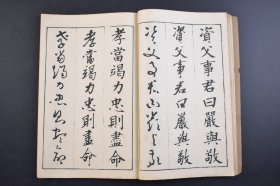 資父事君曰嚴與敬
資父事君曰嚴與敬
資父事君曰嚴與敬
孝當竭力忠則盡命
孝當竭力忠則盡命
孝當竭力忠則盡命